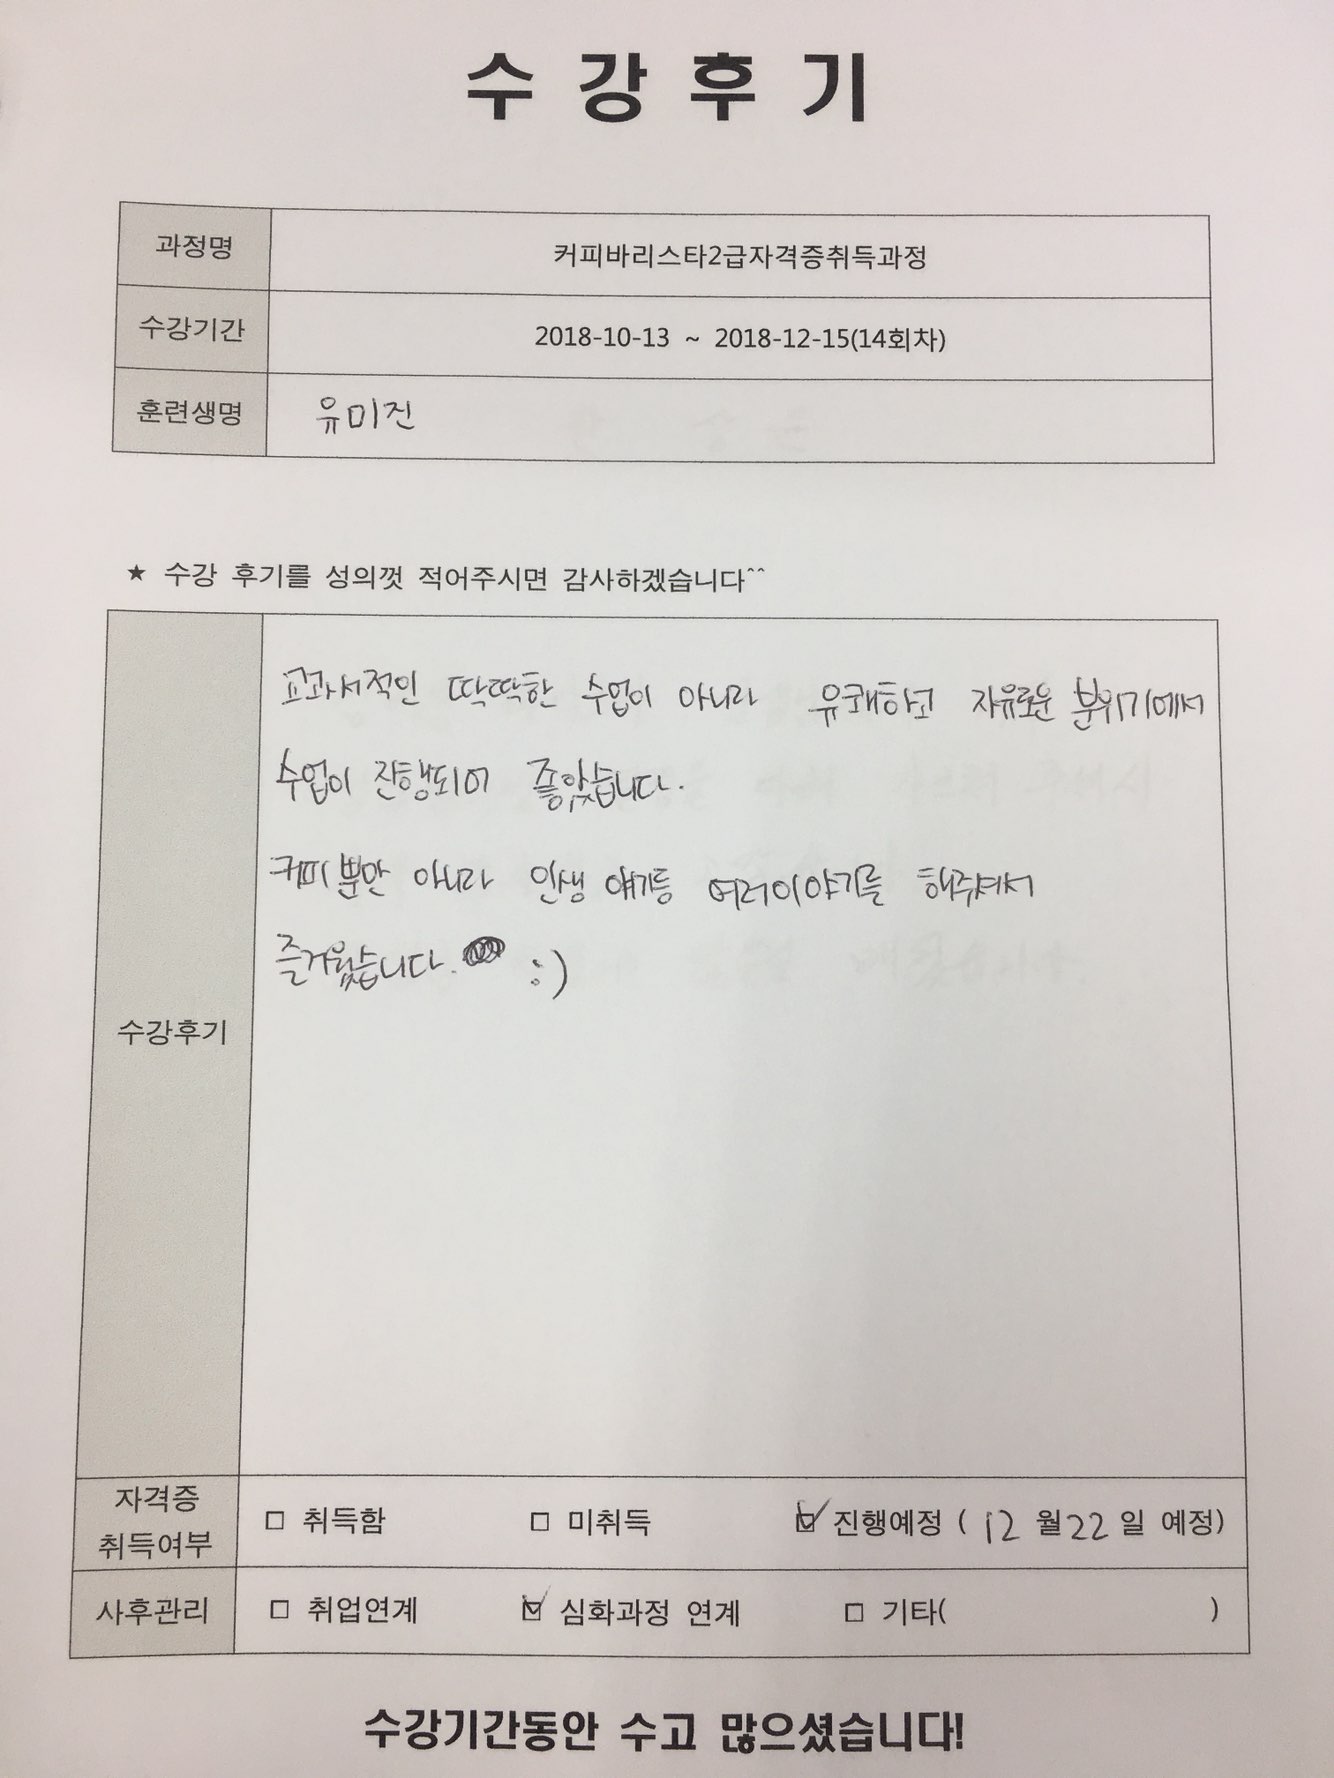 수 강 후 기
과정명 커피바리스타2급자격증취득과정
수강기간 2018-10-13 ~ 2018-12-15(14회차)
훈련생명 유미진
★ 수강 후기를 성의껏 적어주시면 감사하겠습니다^^
교과서적인 딱딱한 수업이 아니라 유쾌하고 자유로운 분위기에서
수업이 진행되어 좋았습니다.
커피뿐만 아니라 인생 얘기등 여러이야기를 해주셔서
즐거웠습니다. :)
수강후기
자격증
취득여부
□ 취득함 □ 미취득 ☑ 진행예정 ( 12 월 22 일 예정)
사후관리 □ 취업연계 ☑ 심화과정 연계 □ 기타( )
수강기간동안 수고 많으셨습니다!